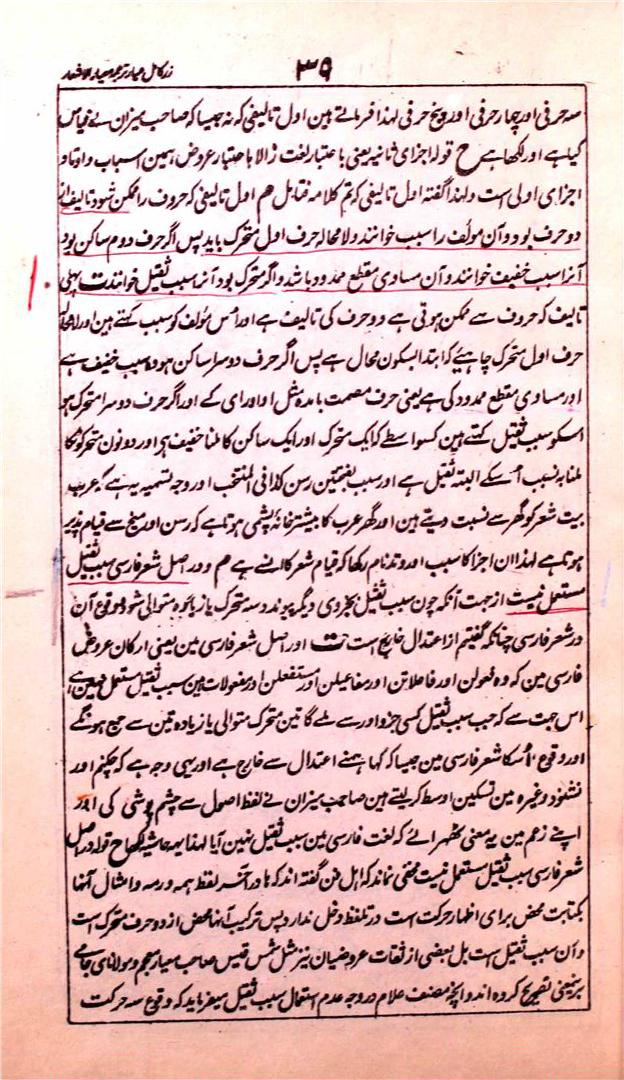 زر کامل عیار ترجمہ معیار الاشعار
۳۹
سہ حرفی اور چار حرفی اور پنج حرفی لہذا فرماتے ہین اول تالیفی کہ نہ جیسا کہ صاحب میزان نے قیاس
کیا ہے اور لکھا ہے ح قولہ اجزای ثانیہ یعنی باعتبار لغت زالا باعتبار عروض ہمین اسباب و اوتاد
اجزای اولی است ولہذا گفتہ اول تالیفی کہ تم کلامہ فتابل ھم اول تالیفی کہ حروف را ممکن شود تالیف از
دو حرف بود و آن مولف را سبب خوانند و لا محالہ حرف اول متحرک باید پس اگر حرف دوم ساکن بود
آنرا سبب خفیف خوانند و آن مساوی مقطع ممدود باشد و اگر متحرک بود آنرا سبب ثقیل خوانند ت پہلی
تالیف کہ حروف سے ممکن ہوتی ہے دو حرف کی تالیف ہے اور اُس مؤلف کو سبب کہتے ہین اور لامحالہ
حرف اول متحرک چاہیئے کہ ابتدا بسکون محال ہے پس اگر حرف دوسرا ساکن ہو وہ سبب خفیف ہے
اور مساوی مقطع ممدود کی ہے یعنی حرف مصمت بامدہ مثل او اور ای کے اور اگر حرف دوسرا متحرک ہو
اسکو سبب ثقیل کہتے ہین کسواسطے کہ ایک متحرک اور ایک ساکن کا ملنا خفیف ہی اور دونون متحرکون کا
ملنا بہ نسبت اُسکے البتہ ثقیل ہے اور سبب بفتحتین رسن کذا فی المنتخب اور وجہ تسمیہ یہ ہے کہ عرب
بیت شعر کو گھر سے نسبت دیتے ہین اور گھر عرب کا بیشتر خانۂ پشمی ہوتا ہے کہ رسن اور میخ سے قیام پذیر
ہوتا ہے لہذا ان اجزا کا سبب اور وتد نام رکھا کہ قیام شعر کا اِنسے ہے ھم و در اصل شعر فارسی سبب ثقیل
مستعمل نیست از جہت آنکہ چون سبب ثقیل بجزوی دیگر پیوندد سہ متحرک یا زیادہ متوالی شود و وقوع آن
در شعر فارسی چنانکہ گفتیم از اعتدال خارج است ت اور اصل شعر فارسی مین یعنی ارکان عروض
فارسی مین کہ وہ فعولن اور فاعلاتن اور مفاعیلن اور مستفعلن اور مفعولات ہین سبب ثقیل مستعمل نہین ہے
اس جہت سے کہ جب سبب ثقیل کسی جزو اور سے ملے گا تین متحرک متوالی یا زیادہ تین سے جمع ہونگے
اور وقوع اُسکا شعر فارسی مین جیسا کہ کہا ہمنے اعتدال سے خارج ہے اور یہی وجہ ہے کہ چکنم اور
نشنود وغیرہ مین تسکین اوسط کر لیتے ہین صاحب میزان نے لفظ اصل سے چشم پوشی کی اور
اپنے زعم مین یہ معنی ٹھہرائے کہ لغت فارسی مین سبب ثقیل نہین آیا لہذا یہ حاشیہ لکھا ح قولہ در اصل
شعر فارسی سبب ثقیل مستعمل نیست مخفی نماند کہ اہل فن گفتہ اند کہ ہا در آخر لفظ ہمہ و رمہ و امثال آنہا
بکتابت محض برای اظہار حرکت است در تلفظ دخل ندارد پس ترکیب آنہا محض از دو حرف متحرک است
و آن سبب ثقیل است بل بعضی از ثقات عروضیان نیز مثل شمس قیس صاحب معیار معجم و مولانای جامی
برینمعنی تصریح کردہ اند و انچہ مصنف علام در وجہ عدم استعمال سبب ثقیل میفرماید کہ وقوع سہ حرکت